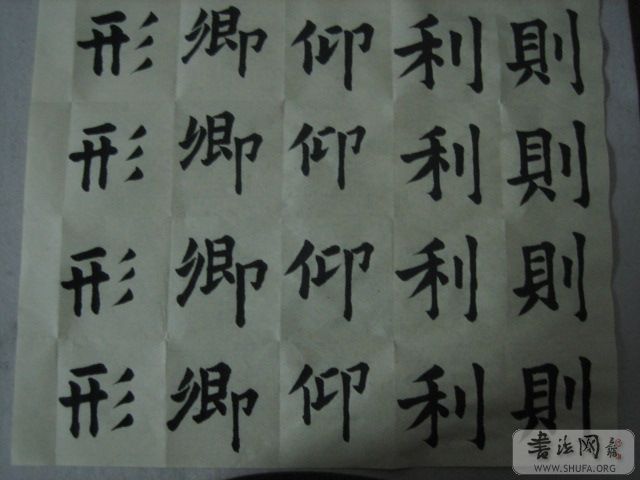 則則則則
利利利利
仰仰仰仰
卿卿卿卿
形形形形
書法网
WWW.SHUFA.ORG